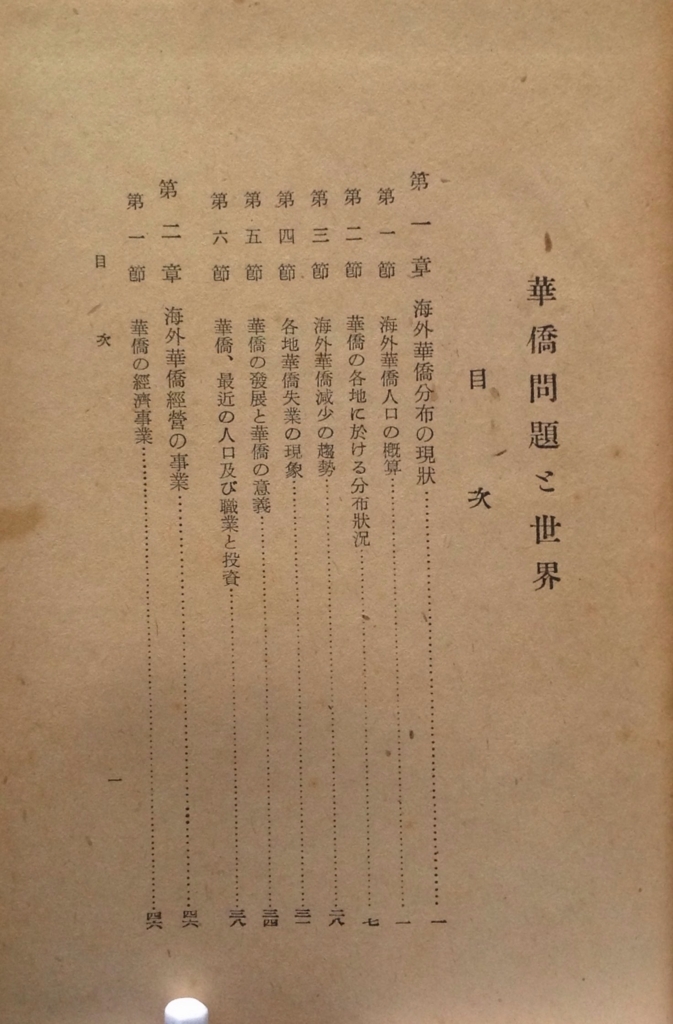 華僑問題と世界
目次
第一章 海外華僑分布の現狀……………一
第一節 海外華僑人口の槪算……………一
第二節 華僑の各地に於ける分布狀況……………七
第三節 海外華僑減少の趨勢……………二八
第四節 各地華僑失業の現象……………三一
第五節 華僑の發展と華僑の意義……………三四
第六節 華僑、最近の人口及び職業と投資……………三八
第二章 海外華僑經營の事業……………四六
第一節 華僑の經濟事業……………四六
目次 一